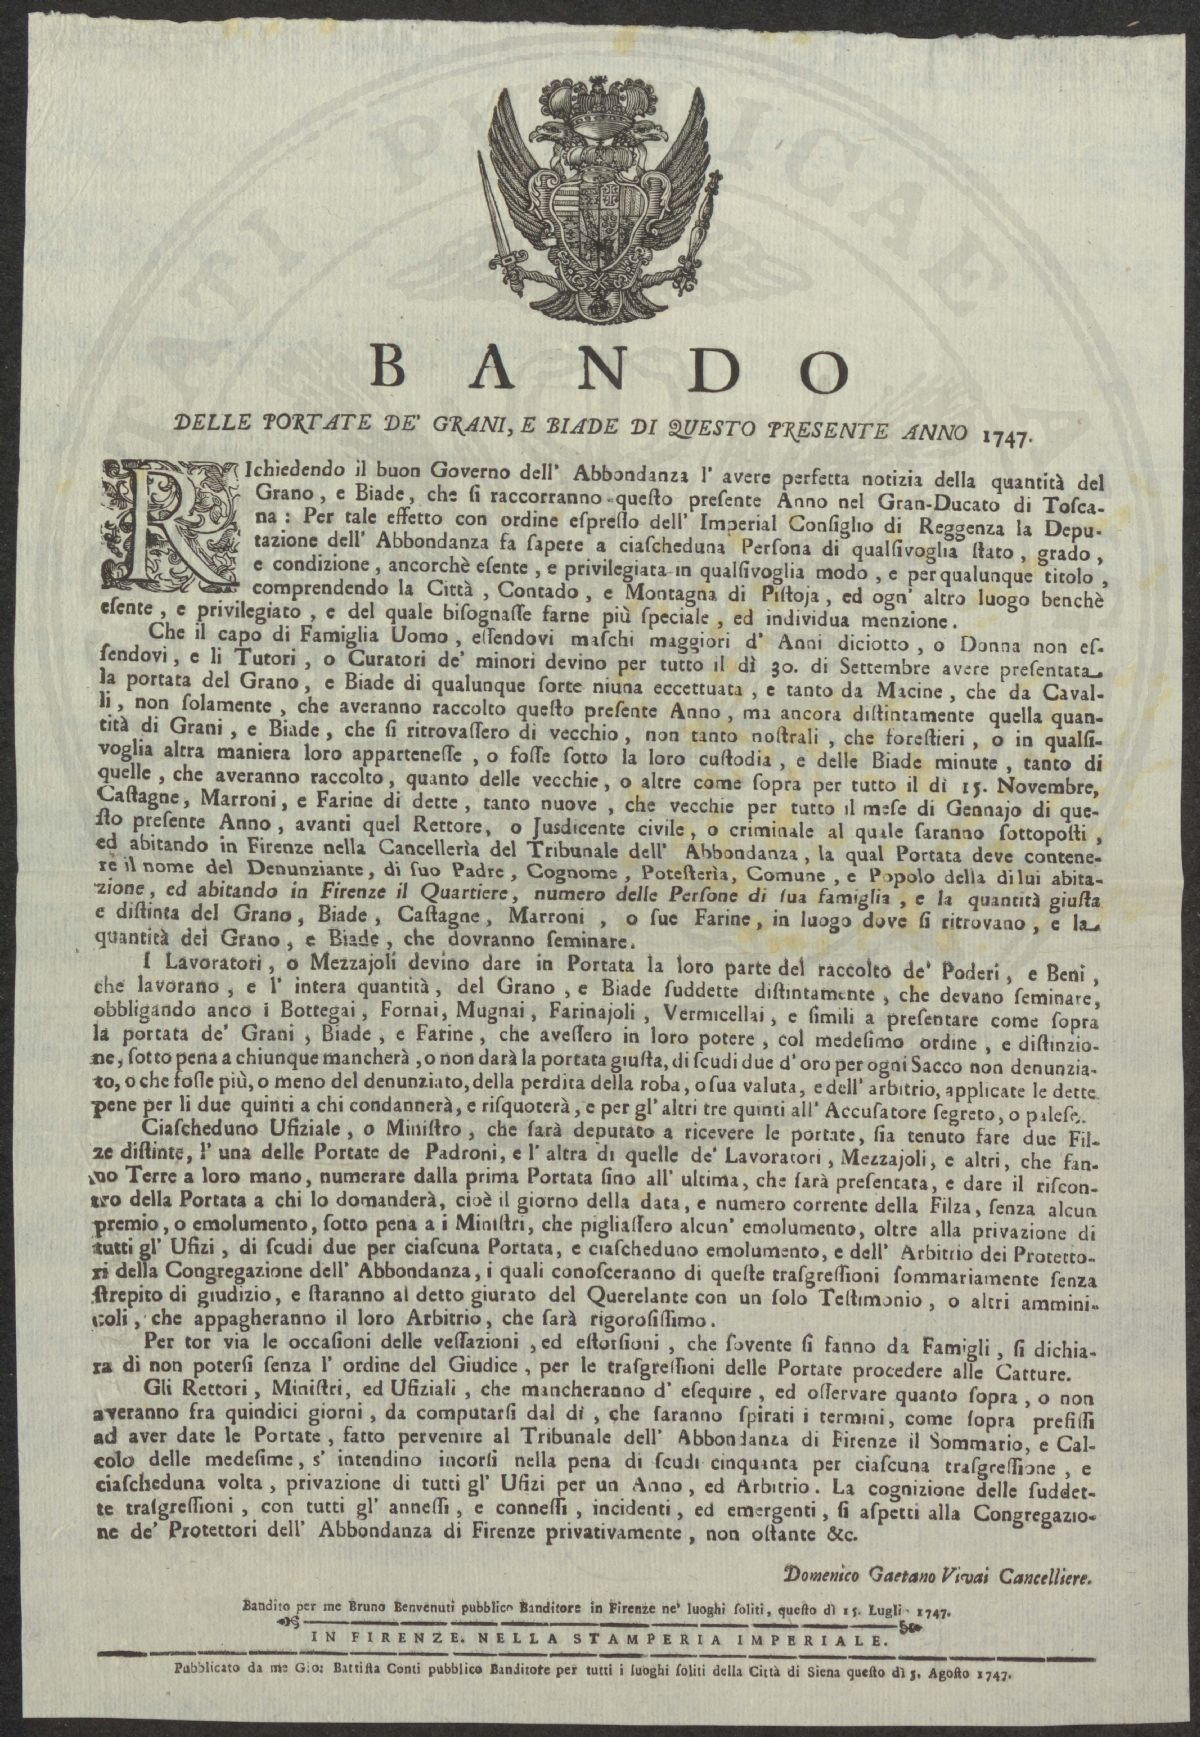 BANDO
DELLE PORTATE DE' GRANI, E BIADE DI QUESTO PRESENTE ANNO 1747.
RIchiedendo il buon Governo dell' Abbondanza l' avere perfetta notizia della quantità del
Grano, e Biade, che si raccorranno questo presente Anno nel Gran-Ducato di Tosca-
na: Per tale effetto con ordine espresso dell' Imperial Consiglio di Reggenza la Depu-
tazione dell' Abbondanza fa sapere a ciascheduna Persona di qualsivoglia stato, grado,
e condizione, ancorchè esente, e privilegiata in qualsivoglia modo, e per qualunque titolo,
comprendendo la Città, Contado, e Montagna di Pistoja, ed ogn' altro luogo benchè
esente, e privilegiato, e del quale bisognasse farne più speciale, ed individua menzione.
Che il capo di Famiglia Uomo, essendovi maschi maggiori d' Anni diciotto, o Donna non es-
sendovi, e li Tutori, o Curatori de' minori devino per tutto il dì 30. di Settembre avere presentata
la portata del Grano, e Biade di qualunque sorte niuna eccettuata, e tanto da Macine, che da Caval-
li, non solamente, che averanno raccolto questo presente Anno, ma ancora distintamente quella quan-
tità di Grani, e Biade, che si ritrovassero di vecchio, non tanto nostrali, che forestieri, o in qualsi-
voglia altra maniera loro appartenesse, o fosse sotto la loro custodia, e delle Biade minute, tanto di
quelle, che averanno raccolto, quanto delle vecchie, o altre come sopra per tutto il dì 15. Novembre,
Castagne, Marroni, e Farine di dette, tanto nuove, che vecchie per tutto il mese di Gennajo di que-
sto presente Anno, avanti quel Rettore, o Jusdicente civile, o criminale al quale saranno sottoposti,
ed abitando in Firenze nella Cancelleria del Tribunale dell' Abbondanza, la qual Portata deve contene-
re il nome del Denunziante, di suo Padre, Cognome, Potesterìa, Comune, e Popolo della di lui abita-
zione, ed abitando in Firenze il Quartiere, numero delle Persone di sua famiglia, e la quantità giusta
e distinta del Grano, Biade, Castagne, Marroni, o sue Farine, in luogo dove si ritrovano, e la
quantità del Grano, e Biade, che dovranno seminare.
I Lavoratori, o Mezzajoli devino dare in Portata la loro parte del raccolto de' Poderi, e Beni,
che lavorano, e l' intera quantità, del Grano, e Biade suddette distintamente, che devano seminare,
obbligando anco i Bottegai, Fornai, Mugnai, Farinajoli, Vermicellai, e simili a presentare come sopra
la portata de' Grani, Biade, e Farine, che avessero in loro potere, col medesimo ordine, e distinzio-
ne, sotto pena a chiunque mancherà, o non darà la portata giusta, di scudi due d' oro per ogni Sacco non denunzia-
to, o che fosse più, o meno del denunziato, della perdita della roba, o sua valuta, e dell' arbitrio, applicate le dette
pene per li due quinti a chi condannerà, e risquoterà, e per gl' altri tre quinti all' Accusatore segreto, o palese.
Ciascheduno Ufiziale, o Ministro, che sarà deputato a ricevere le portate, sia tenuto fare due Fil-
ze distinte, l' una delle Portate de Padroni, e l' altra di quelle de' Lavoratori, Mezzajoli, e altri, che fan-
no Terre a loro mano, numerare dalla prima Portata sino all' ultima, che sarà presentata, e dare il riscon-
tro della Portata a chi lo domanderà, cioè il giorno della data, e numero corrente della Filza, senza alcun
premio, o emolumento, sotto pena a i Ministri, che pigliassero alcun' emolumento, oltre alla privazione di
tutti gl' Ufizi, di scudi due per ciascuna Portata, e ciascheduno emolumento, e dell' Arbitrio dei Protetto-
ri della Congregazione dell' Abbondanza, i quali conosceranno di queste trasgressioni sommariamente senza
strepito di giudizio, e staranno al detto giurato del Querelante con un solo Testimonio, o altri ammini-
coli, che appagheranno il loro Arbitrio, che sarà rigorosissimo.
Per tor via le occasioni delle vessazioni, ed estorsioni, che sovente si fanno da Famigli, si dichia-
ra di non potersi senza l' ordine del Giudice, per le trasgressioni delle Portate procedere alle Catture.
Gli Rettori, Ministri, ed Ufiziali, che mancheranno d' esequire, ed osservare quanto sopra, o non
averanno fra quindici giorni, da computarsi dal dì, che saranno spirati i termini, come sopra prefissi
ad aver date le Portate, fatto pervenire al Tribunale dell' Abbondanza di Firenze il Sommario, e Cal-
colo delle medesime, s' intendino incorsi nella pena di scudi cinquanta per ciascuna trasgressione, e
ciascheduna volta, privazione di tutti gl' Ufizi per un Anno, ed Arbitrio. La cognizione delle suddet-
te trasgressioni, con tutti gl' annessi, e connessi, incidenti, ed emergenti, si aspetti alla Congregazio-
ne de' Protettori dell' Abbondanza di Firenze privativamente, non ostante &c.
Domenico Gaetano Vivai Cancelliere.
Bandito per me Bruno Benvenuti pubblico Banditore in Firenze ne' luoghi soliti, questo dì 15. Luglio 1747.
IN FIRENZE. NELLA STAMPERIA IMPERIALE.
Pubblicato da me Gio: Battista Conti pubblico Banditore per tutti i luoghi soliti della Città di Siena questo dì 5. Agosto 1747.